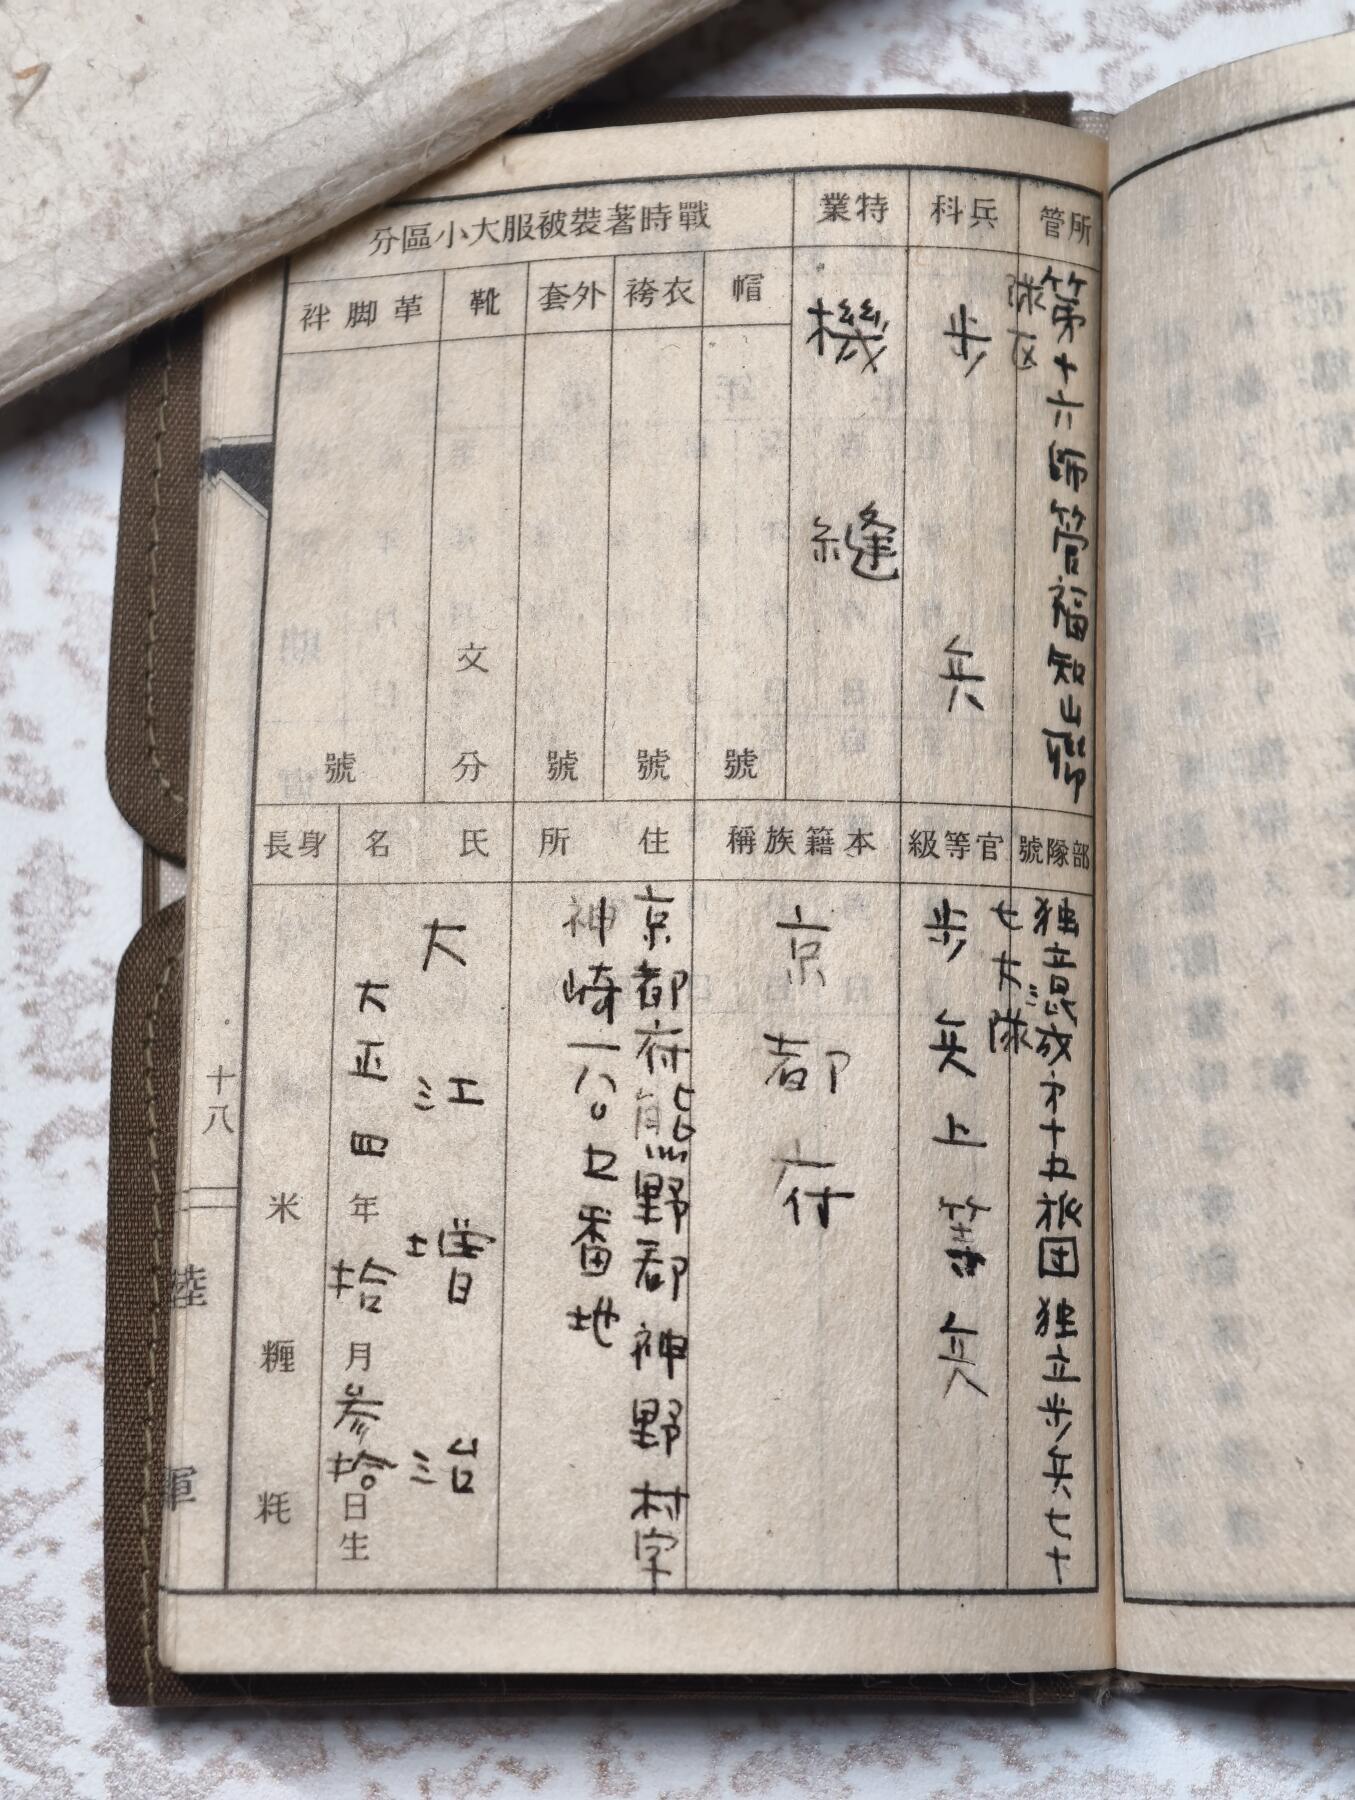 管所
第十六師管福知山聯
隊区
科兵
歩兵
業特
機縫
分區小大服被裝著時戰
帽
號
袴衣
號
套外
號
靴
文
分
袢脚革
號
號隊部
独立混成才十五旅団独立歩兵七十
七大隊
級等官
歩兵上等兵
稱族籍本
京都府
所住
京都府熊野郡神野村字
神崎一八〇五番地
名氏
大江増治
大正四年拾月参拾日生
長身
米
糎
粍
十八
陸軍